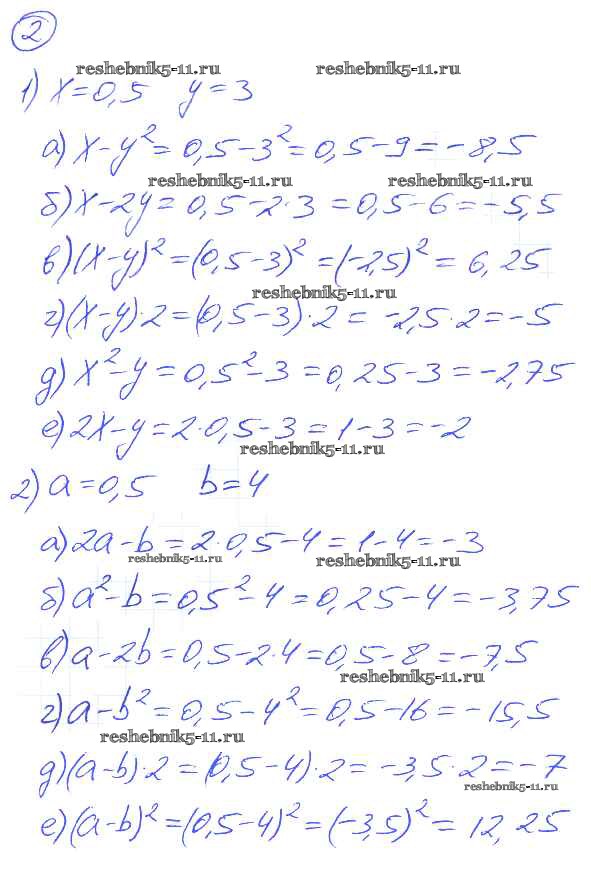 2
reshebnik5-11.ru reshebnik5-11.ru
1) x=0,5 y=3
а) x-y²=0,5-3²=0,5-9=-8,5
reshebnik5-11.ru reshebnik5-11.ru
б) x-2y=0,5-2·3=0,5-6=-5,5
в) (x-y)²=(0,5-3)²=(-2,5)²=6,25
reshebnik5-11.ru
г) (x-y)·2=(0,5-3)·2=-2,5·2=-5
д) x²-y=0,5²-3=0,25-3=-2,75
е) 2x-y=2·0,5-3=1-3=-2
reshebnik5-11.ru
2) a=0,5 b=4
а) 2a-b=2·0,5-4=1-4=-3
reshebnik5-11.ru reshebnik5-11.ru
б) a²-b=0,5²-4=0,25-4=-3,75
в) a-2b=0,5-2·4=0,5-8=-7,5
reshebnik5-11.ru
г) a-b²=0,5-4²=0,5-16=-15,5
reshebnik5-11.ru
д) (a-b)·2=(0,5-4)·2=-3,5·2=-7
reshebnik5-11.ru
е) (a-b)²=(0,5-4)²=(-3,5)²=12,25